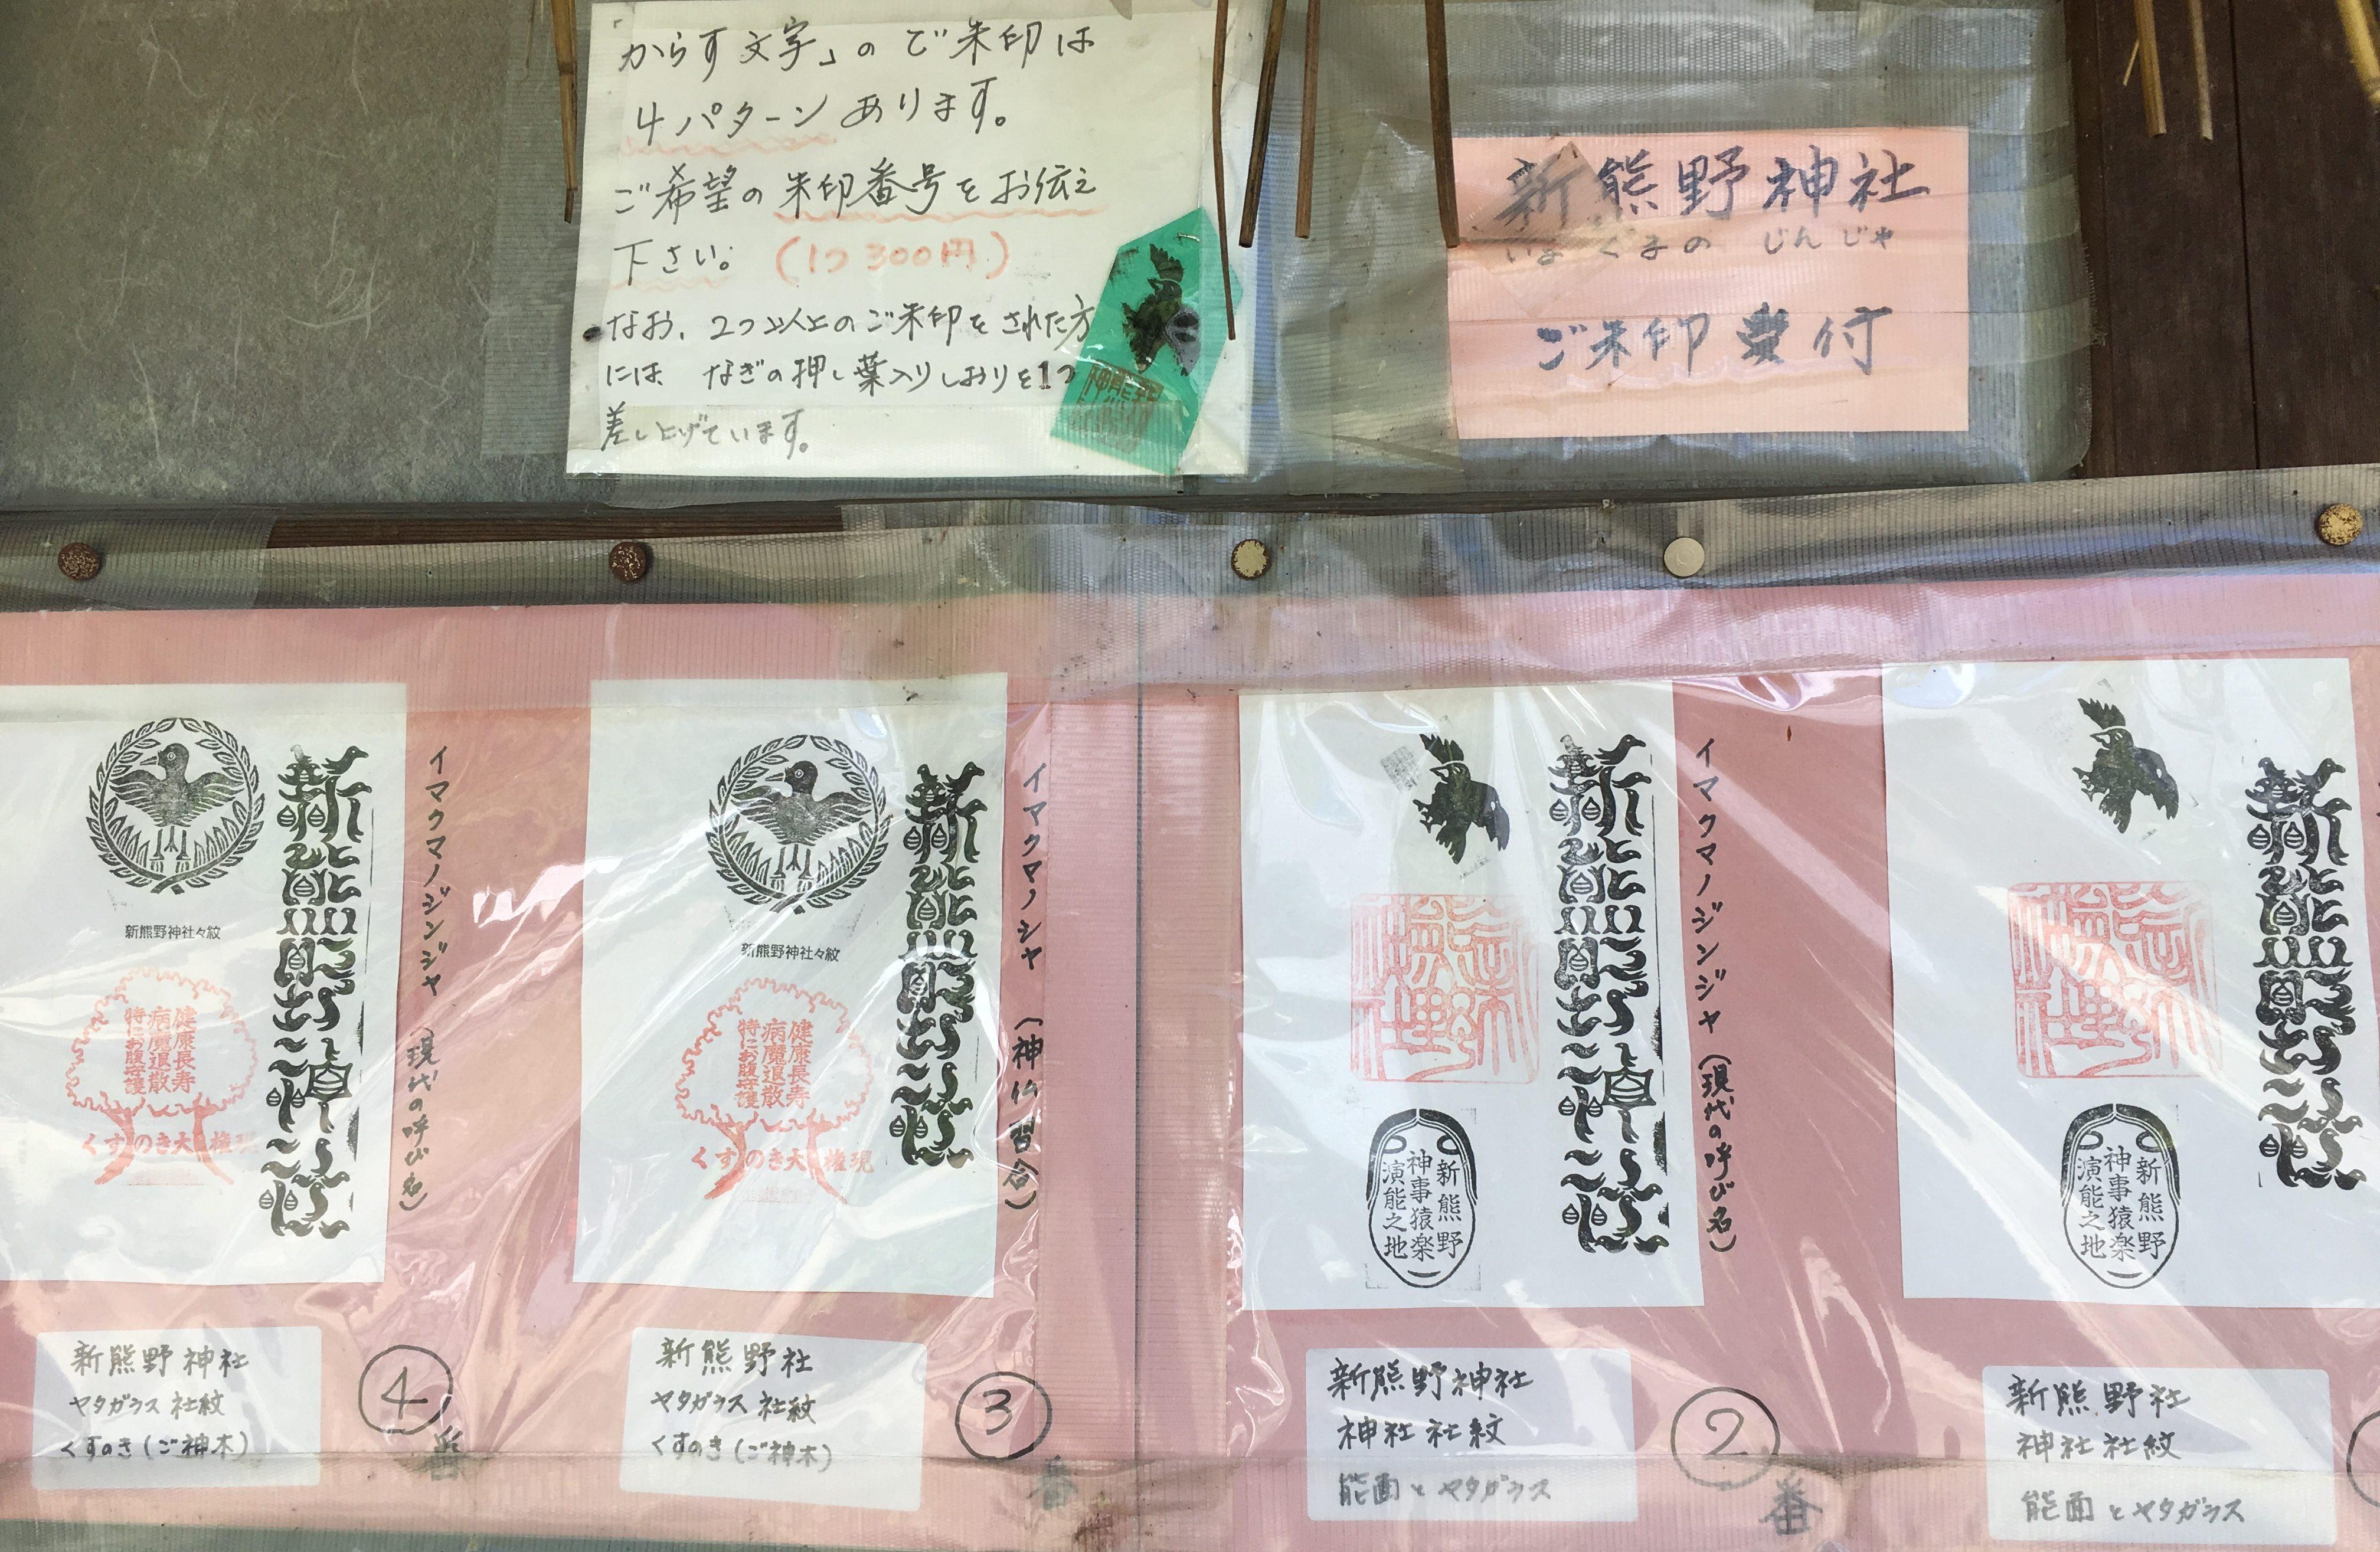 「からす文字」のご朱印は
4パターンあります。
ご希望の朱印番号をお伝え
下さい。(1つ300円)
なお、2つ以上のご朱印をされた方
には なぎの押し葉入りしおりを1つ
差し上げています。
新熊野神社
いまぐまの じんじゃ
ご朱印受付
新熊野神社々紋
健康長寿
病魔退散
特にお腹守護
くすのき大権現
イマクマノジンジャ(現代の呼び名)
新熊野神社
ヤタガラス社紋
くすのき(ご神木)
④番
新熊野神社々紋
健康長寿
病魔退散
特にお腹守護
くすのき大権現
イマクマノシャ(神仏習合)
新熊野社
ヤタガラス社紋
くすのき(ご神木)
③番
新熊野
神事猿楽
演能之地
イマクマノジンジャ(現代の呼び名)
新熊野神社
神社社紋
能面とヤタガラス
②番
新熊野
神事猿楽
演能之地
新熊野社
神社社紋
能面とヤタガラス